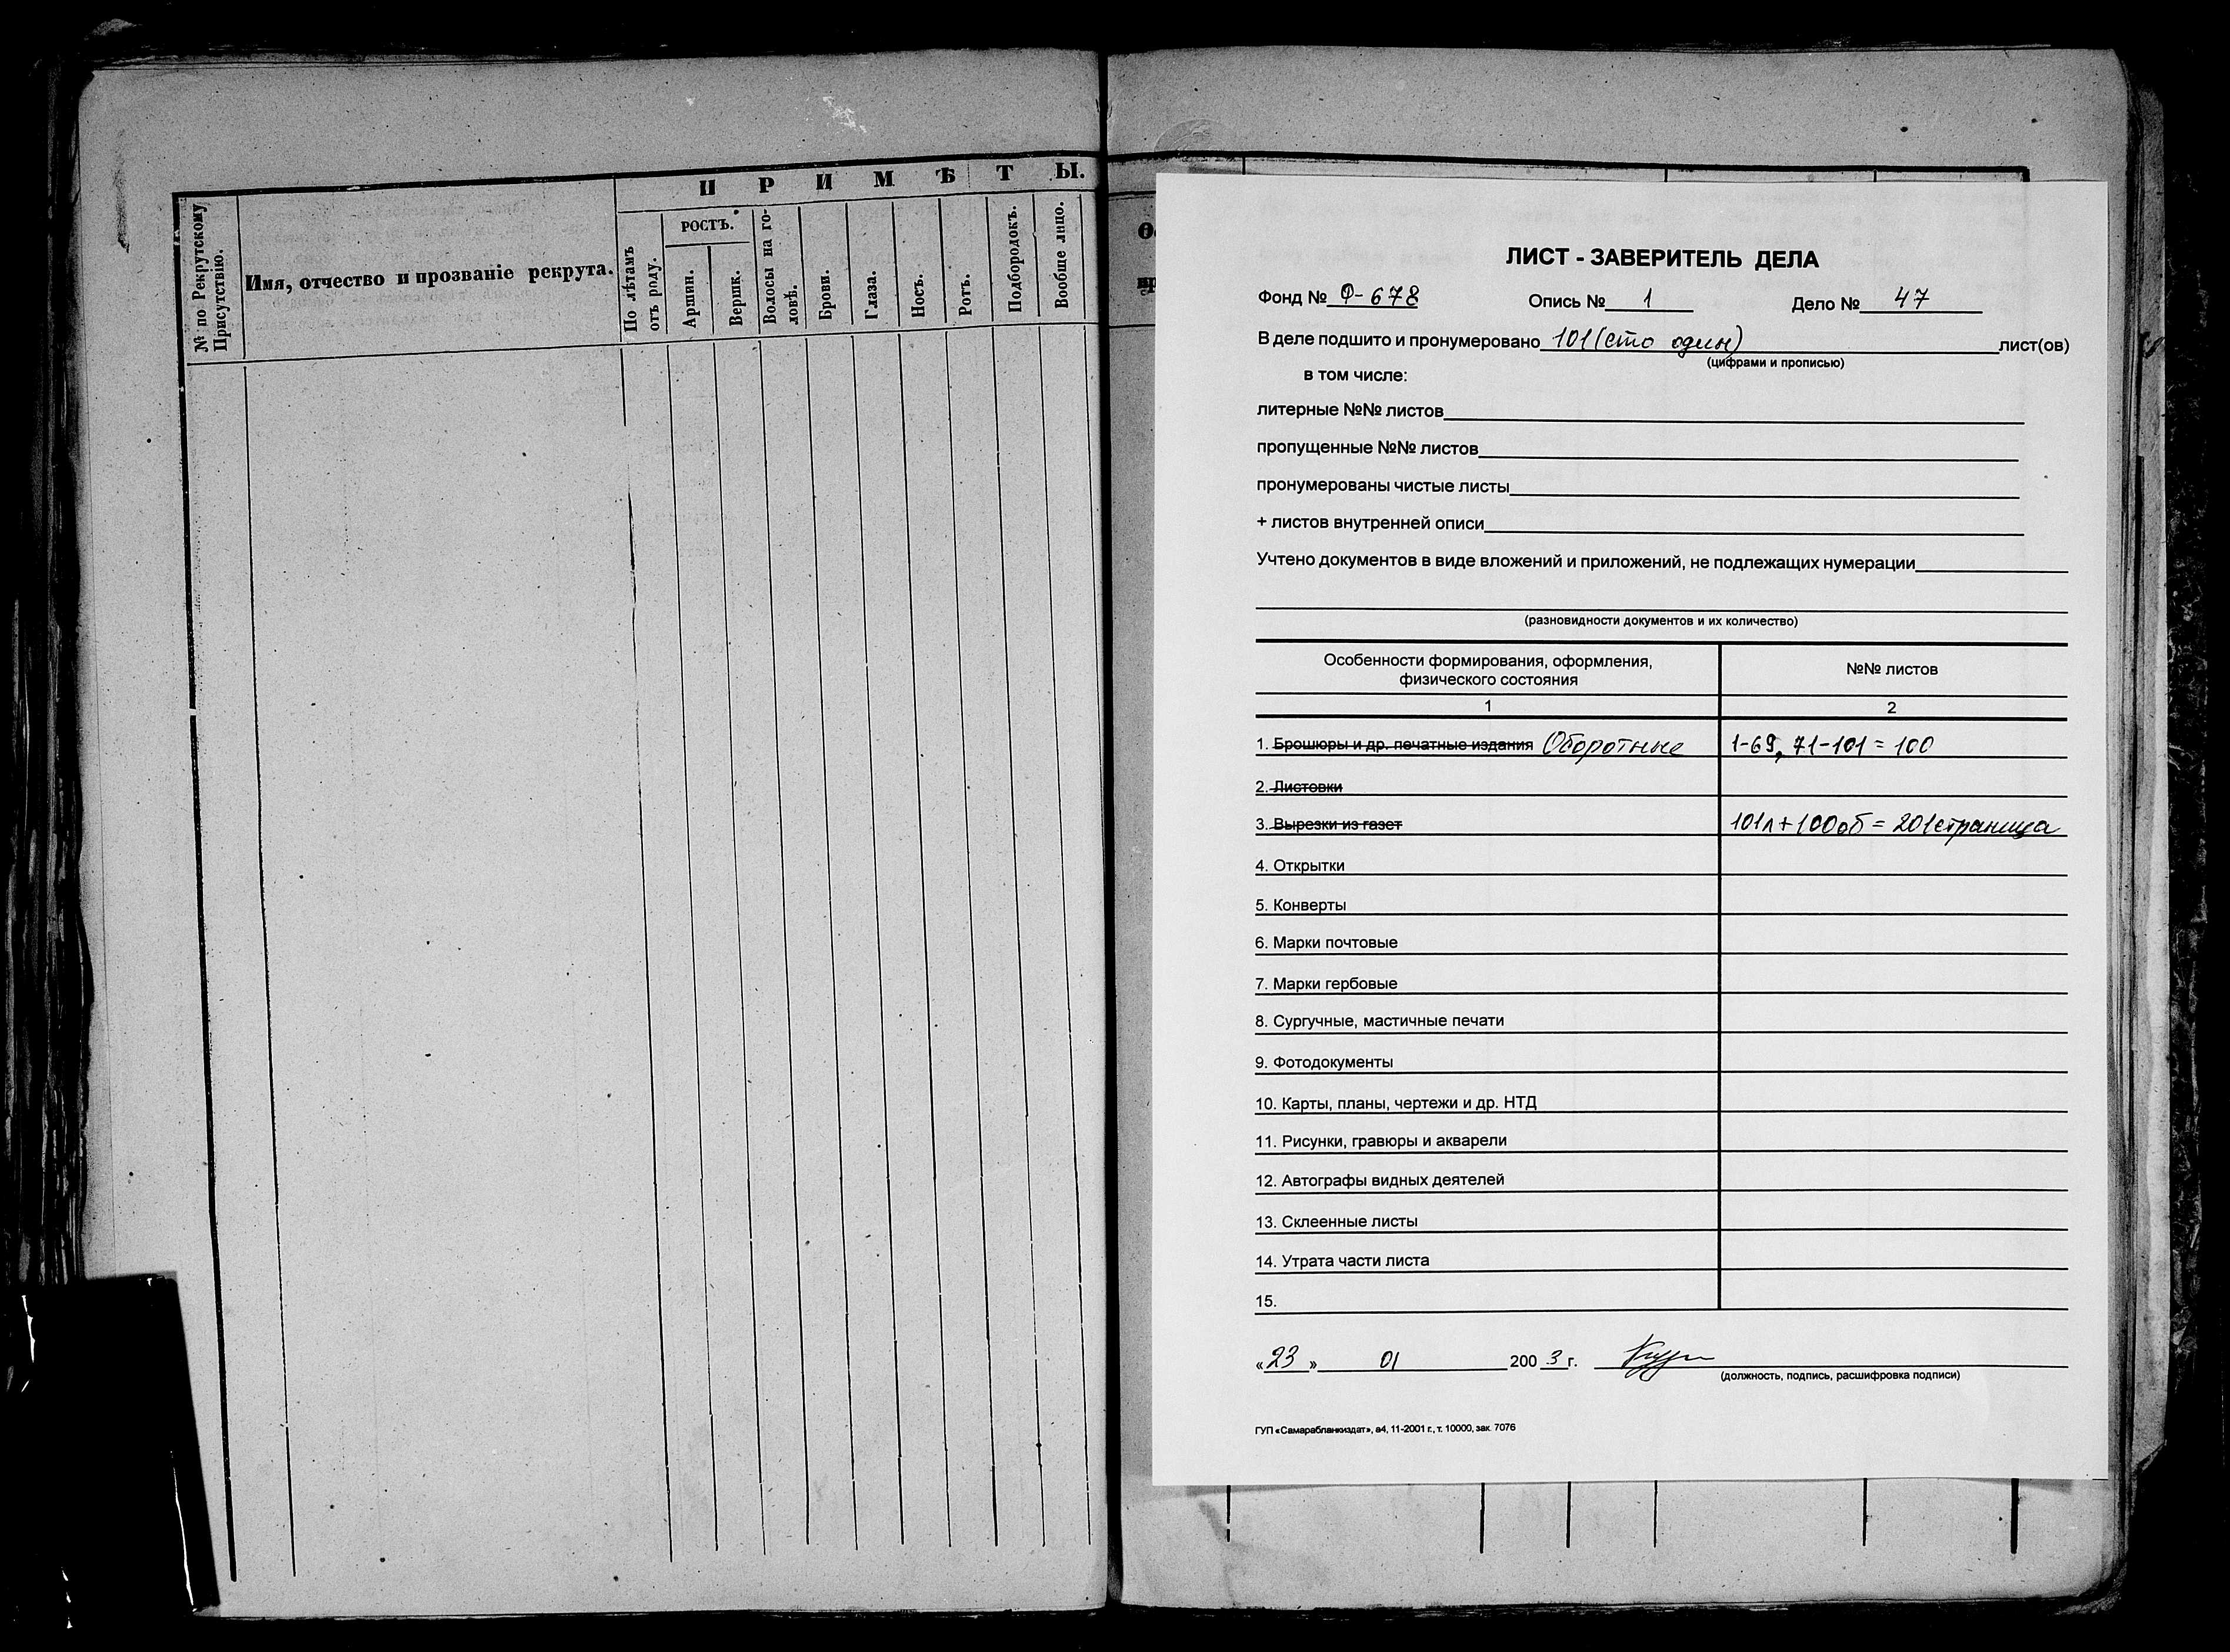 П Р И М Ѣ Т Ы.
№ по Рекрутскому Присутствію.
Имя, отчество и прозваніе рекрута.
По лѣтамъ отъ роду.
РОСТЪ.
Аршин.
Вершк.
Волосы на го-
ловѣ.
Брови.
Глаза.
Носъ.
Ротъ.
Подбородокъ.
Вообще лицо.
ЛИСТ - ЗАВЕРИТЕЛЬ ДЕЛА
Фонд № Ф-678 Опись № 1 Дело № 47
В деле подшито и пронумеровано 101 (сто один) лист(ов)
(цифрами и прописью)
в том числе:
литерные №№ листов
пропущенные №№ листов
пронумерованы чистые листы
+ листов внутренней описи
Учтено документов в виде вложений и приложений, не подлежащих нумерации
(разновидности документов и их количество)
Особенности формирования, оформления,
физического состояния
№№ листов
1 2
1. Брошюры и др. печатные издания Оборотные 1-69, 71-101 = 100
2. Листовки
3. Вырезки из газет 101л + 100об = 201 страница
4. Открытки
5. Конверты
6. Марки почтовые
7. Марки гербовые
8. Сургучные, мастичные печати
9. Фотодокументы
10. Карты, планы, чертежи и др. НТД
11. Рисунки, гравюры и акварели
12. Автографы видных деятелей
13. Склеенные листы
14. Утрата части листа
15.
«23» 01 2003 г.
(должность, подпись, расшифровка подписи)
ГУП «Самарабланкиздат», а4, 11-2001 г., т. 10000, зак. 7076